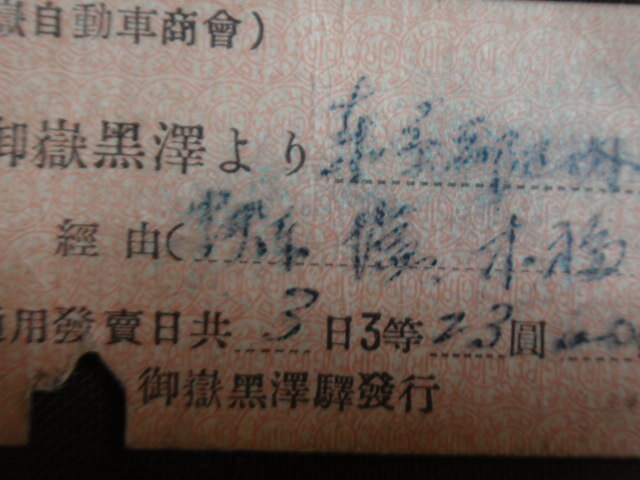 嶽自動車商會)
御嶽黑澤より東京都区内
經由(
通用發賣日共3日3等23圓
御嶽黑澤驛發行